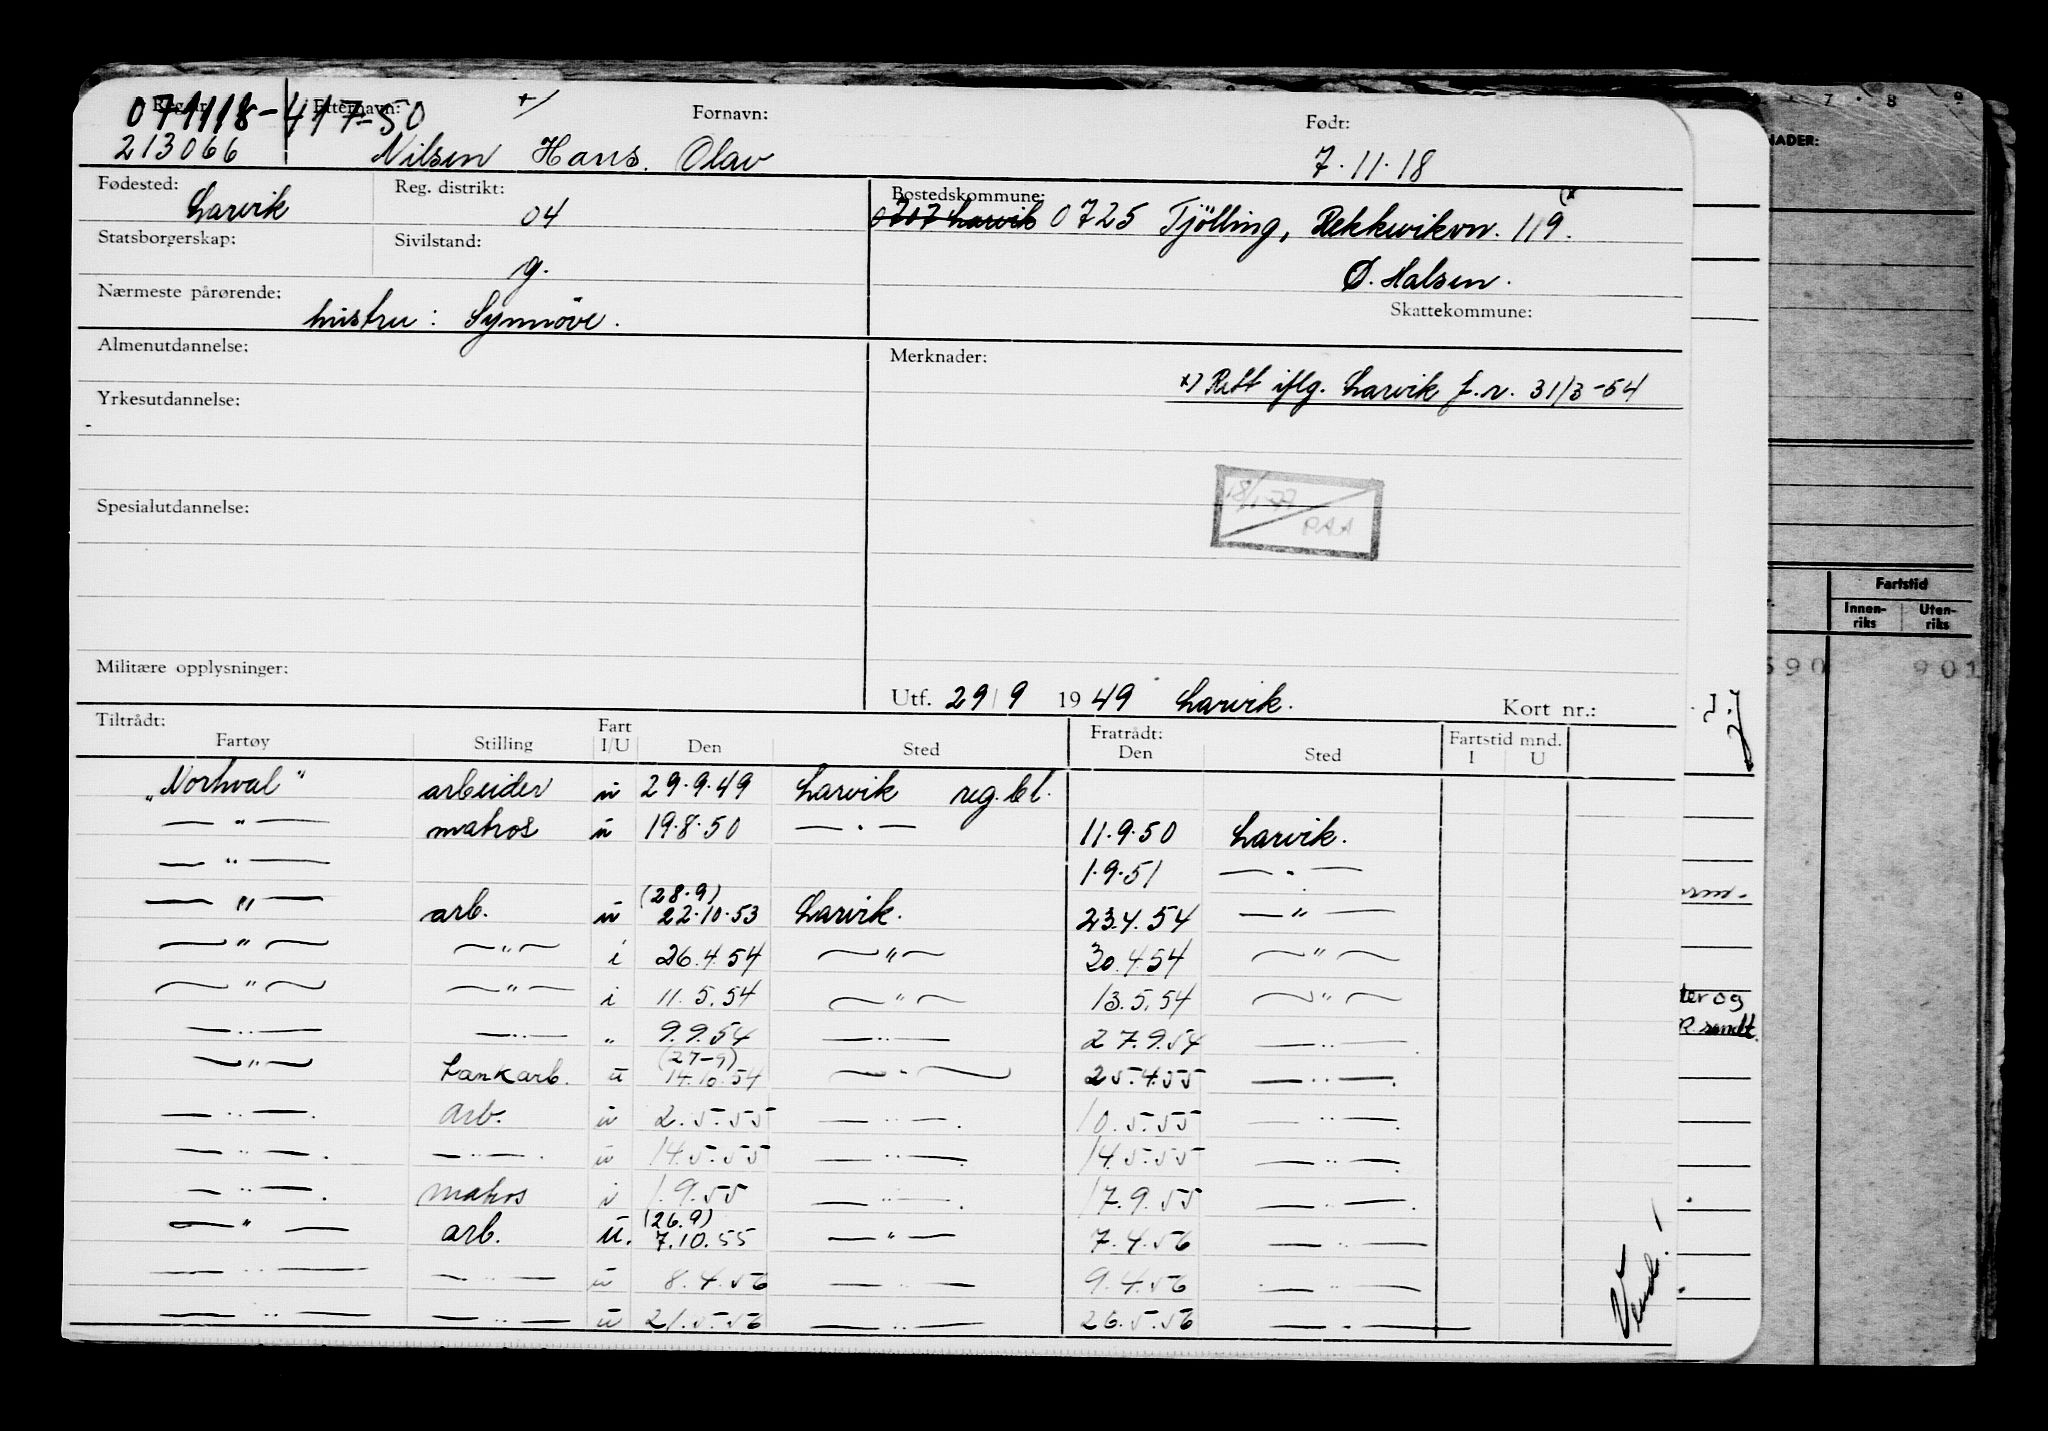 Reg.nr. Etternavn: Fornavn: Født:
071118-41750 +/
213066 Nilsen Hans Olav 7.11.18
Fødested: Reg. distrikt: Bostedskommune:
Larvik 04 0707 Larvik 0725 Tjölling, Rekkevikvn. 119. x)
Statsborgerskap: Sivilstand:
g. Ø. Halsen.
Nærmeste pårørende: Skattekommune:
hustru: Synnöve.
Almenutdannelse: Merknader:
x) Rett iflg. Larvik f.r. 31/3-54
Yrkesutdannelse:
18/1-77
PAA
Spesialutdannelse:
Militære opplysninger:
Utf. 29/9 1949 Larvik. Kort nr.:
Tiltrådt: Fratrådt:
Fartøy Stilling Fart I/U Den Sted Den Sted Fartstid mnd. I U
"Norhval" arbeider u 29.9.49 Larvik reg.bl.
— " — matros u 19.8.50 — " — 11.9.50 Larvik.
— " — 1.9.51 — " —
— " — arb. u (28.9) 22.10.53 Larvik. 23.4.54 — " —
— " — — " — i 26.4.54 — " — 30.4.54 — " —
— " — — " — i 11.5.54 — " — 13.5.54 — " —
— " — — " — " 9.9.54 — " — 27.9.54 — " —
— " — tankarb. u (27-9) 14.10.54 — " — 25.4.55 — " —
— " — arb. u 2.5.55 — " — 10.5.55 — " —
— " — — " — u 14.5.55 — " — 14.5.55 — " —
— " — matros i 1.9.55 — " — 17.9.55 — " —
— " — arb. u. (26.9) 7.10.55 — " — 7.4.56 — " —
— " — — " — u 8.4.56 — " — 9.4.56 — " —
— " — — " — u 21.5.56 — " — 26.5.56 — " —
Vend!
7 . 8 9
NADER:
Fartstid
Innen-
riks
Uten-
riks
590 901
ter og
R. sendt.